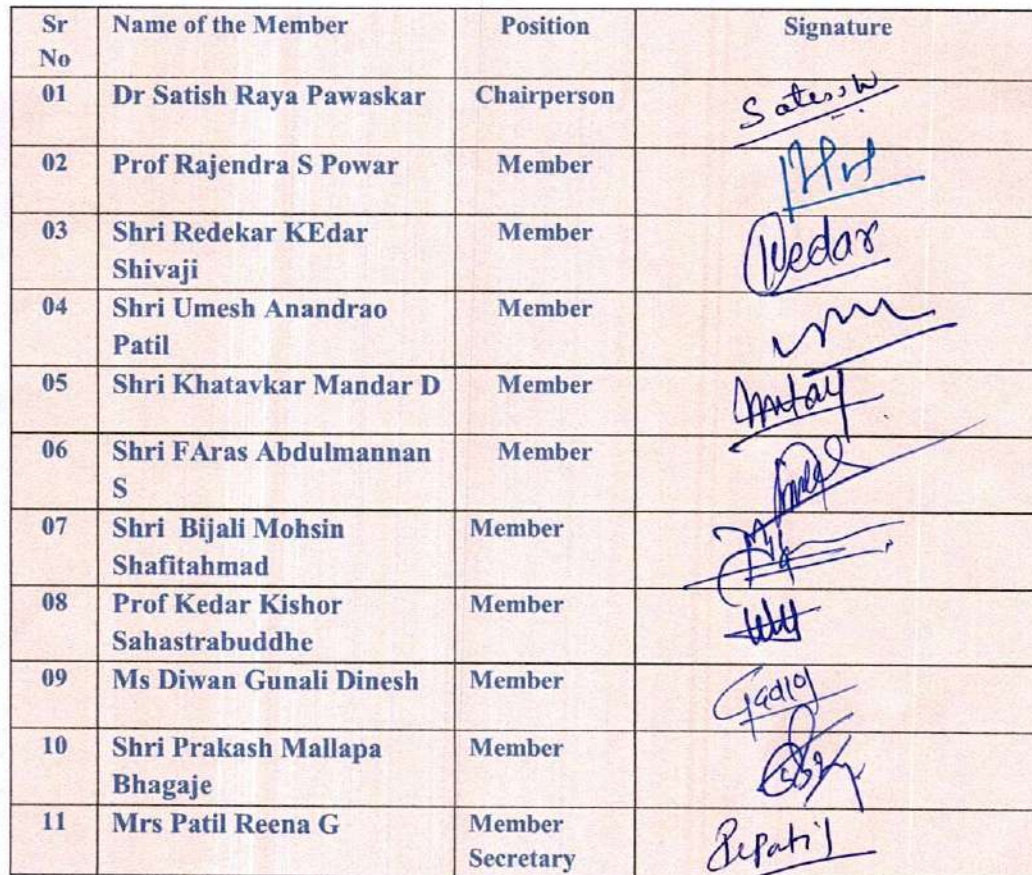 Sr No Name of the Member Position Signature
01 Dr Satish Raya Pawaskar Chairperson Satish
02 Prof Rajendra S Powar Member
03 Shri Redekar KEdar Shivaji Member Kedar
04 Shri Umesh Anandrao Patil Member
05 Shri Khatavkar Mandar D Member
06 Shri FAras Abdulmannan S Member
07 Shri Bijali Mohsin Shafitahmad Member
08 Prof Kedar Kishor Sahastrabuddhe Member
09 Ms Diwan Gunali Dinesh Member
10 Shri Prakash Mallapa Bhagaje Member
11 Mrs Patil Reena G Member Secretary RePatil